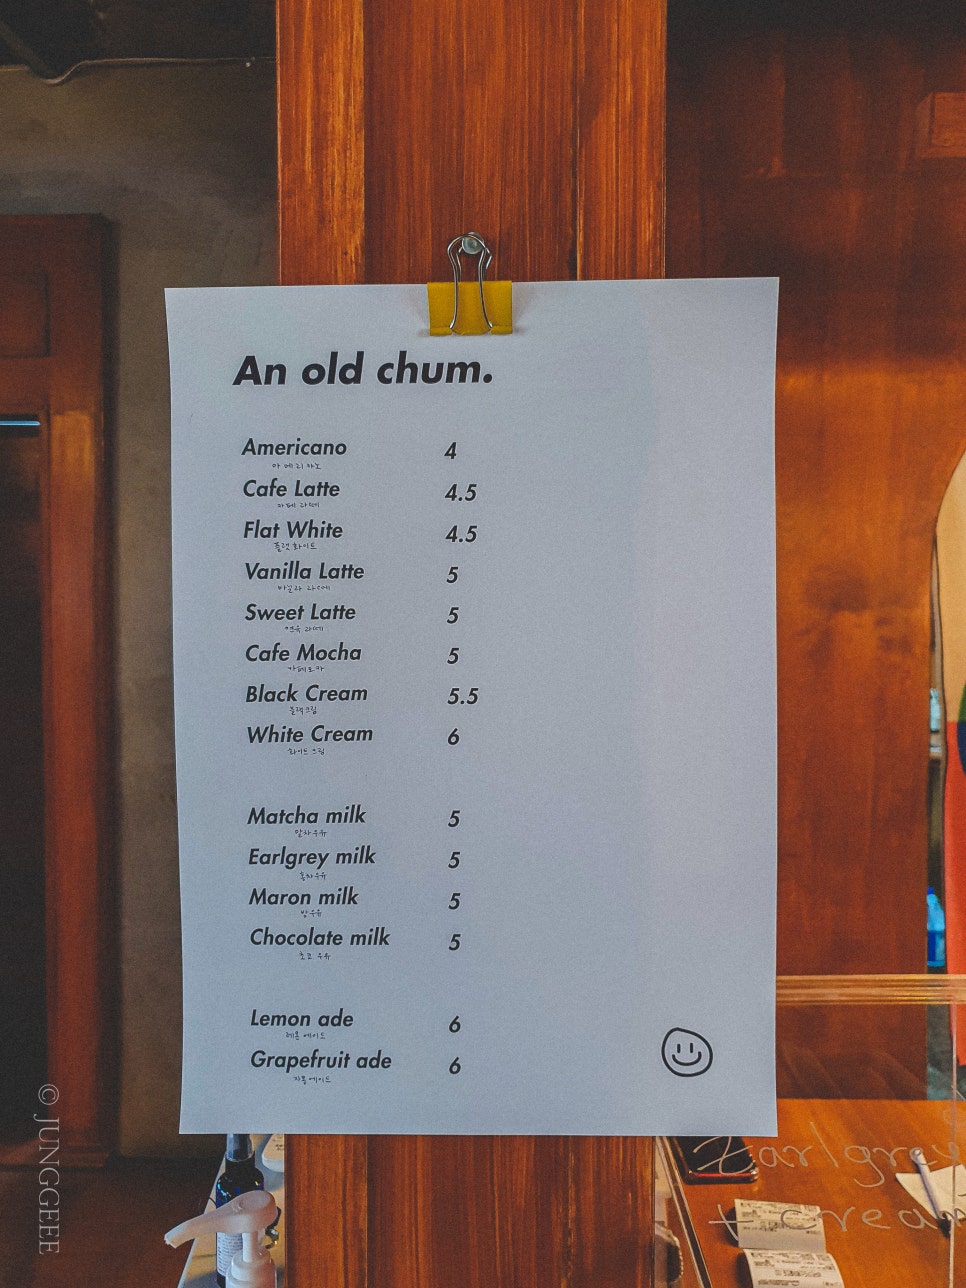 An old chum.
Americano 4
아메리카노
Cafe Latte 4.5
카페 라떼
Flat White 4.5
플랫 화이트
Vanilla Latte 5
바닐라 라떼
Sweet Latte 5
연유 라떼
Cafe Mocha 5
카페모카
Black Cream 5.5
블랙크림
White Cream 6
화이트 크림
Matcha milk 5
말차우유
Earlgrey milk 5
홍차우유
Maron milk 5
밤우유
Chocolate milk 5
초코 우유
Lemon ade 6
레몬 에이드
Grapefruit ade 6
자몽에이드
Earlgrey
+ cream
© JUNGGEEE